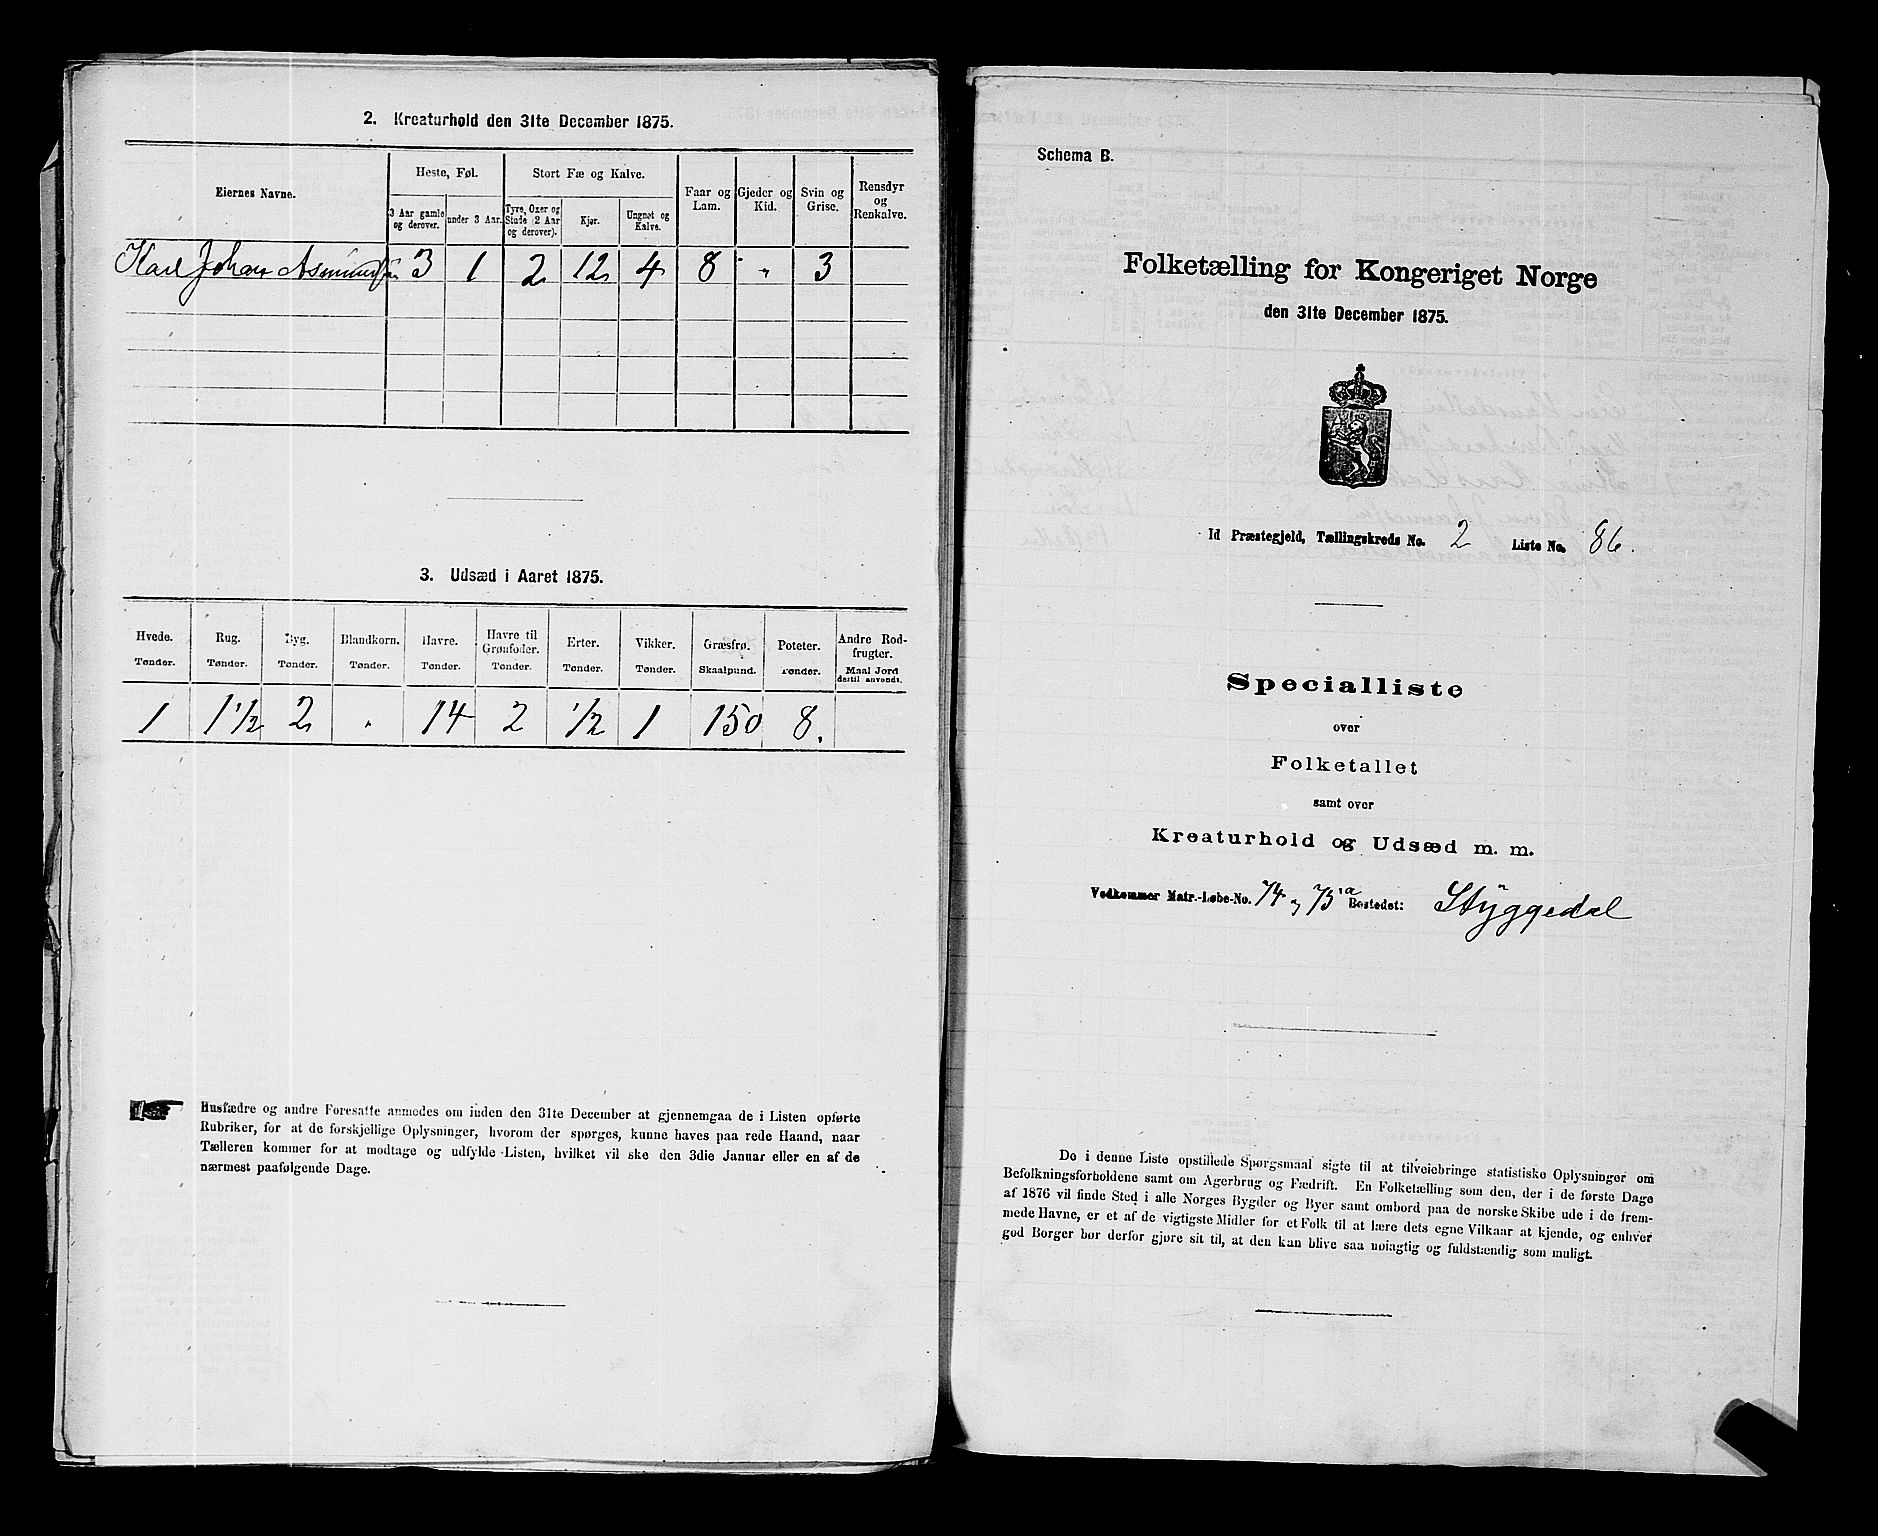 2. Kreaturhold den 31te December 1875.
Eiernes Navne.
Heste, Føl.
Stort Fæ og Kalve.
Faar og Lam.
Gjeder og Kid.
Svin og Grise.
Rensdyr og Renkalve.
3 Aar gamle og derover.
under 3 Aar.
Tyre, Oxer og Stude (2 Aar og derover).
Kjør.
Ungnøt og Kalve.
Karl Johan Asmundsen 3 1 2 12 4 8 " " 3
3. Udsæd i Aaret 1875.
Hvede. Rug. Byg. Blandkorn. Havre. Havre til Grønfoder. Erter. Vikker. Græsfrø. Poteter. Andre Rodfrugter.
Tønder. Tønder. Tønder. Tønder. Tønder. Tønder. Tønder. Tønder. Skaalpund. Tønder. Maal Jord dertil anvendt.
1 1 1/2 2 " 14 2 1/2 1 150 8.
Husfædre og andre Foresatte anmodes om inden den 31te December at gjennemgaa de i Listen opførte
Rubriker, for at de forskjellige Oplysninger, hvorom der spørges, kunne haves paa rede Haand, naar
Tælleren kommer for at modtage og udfylde Listen, hvilket vil ske den 3die Januar eller en af de
nærmest paafølgende Dage.
Schema B.
Folketælling for Kongeriget Norge
den 31te December 1875.
Id Præstegjeld, Tællingskreds No. 2 Liste No. 86.
Specialliste
over
Folketallet
samt over
Kreaturhold og Udsæd m. m.
Vedkommer Matr.-Løbe-No. 74 og 75a Bostedet: Styggedal
De i denne Liste opstillede Spørgsmaal sigte til at tilveiebringe statistiske Oplysninger om
Befolkningsforholdene samt om Agerbrug og Fædrift. En Folketælling som den, der i de første Dage
af 1876 vil finde Sted i alle Norges Bygder og Byer samt ombord paa de norske Skibe ude i de frem-
mede Havne, er et af de vigtigste Midler for et Folk til at lære dets egne Vilkaar at kjende, og enhver
god Borger bør derfor gjøre sit til, at den kan blive saa nøiagtig og fuldstændig som muligt.